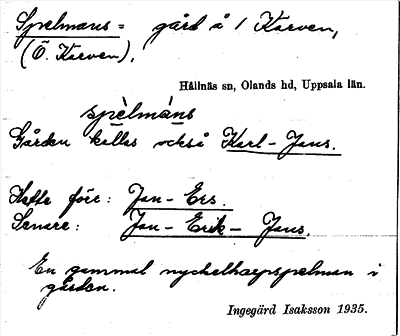 Spelmans = gård å 1 Karven,
(Ö. Karven).
Hållnäs sn, Olands hd, Uppsala län.
spèlmáns
Gården kallas också Karl-Jans.
Hette förr: Jan-Ers.
Senare: Jan-Erik-Jans.
En gammal nyckelharpspelman i
gården.
Ingegärd Isaksson 1935.